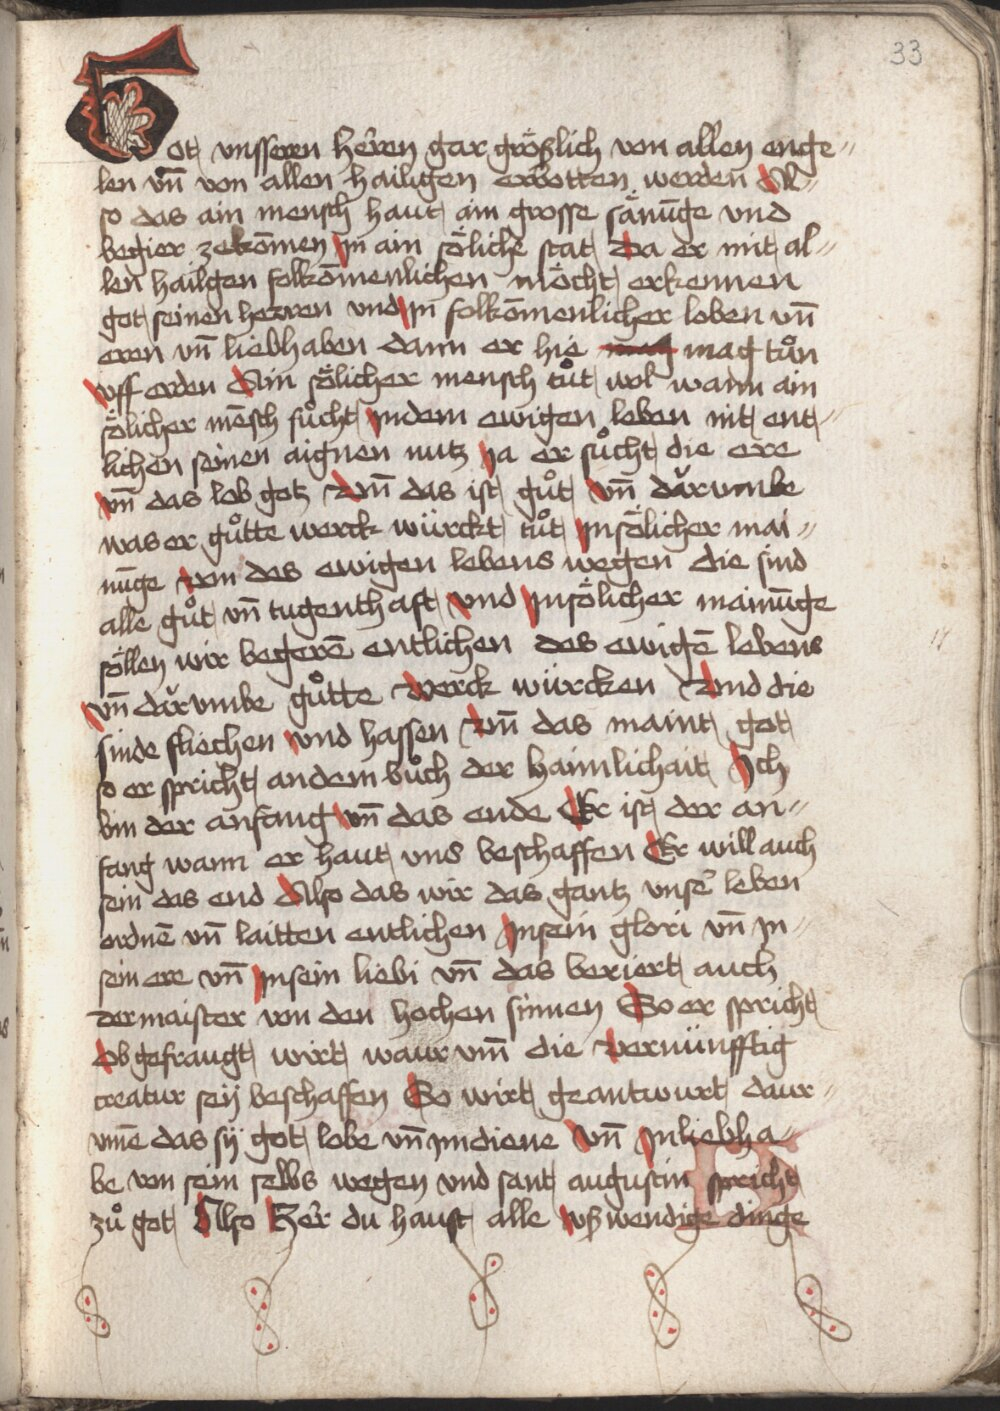 33
Got unssern herren gar größlich von allen enge-
len vn̄ von allen hailigen erbotten werden Al-
so das ain mensch haut ain grosse sänūge vnd
begier zekomēn jn ain söliche stat Da er mit al-
len hailgen folkōmenlichen möcht erkennen
got seinen herren vnd jn folkōmenlicher loben vn̄
eren vn̄ liebhaben dann er hie mag tůn
vff erden Ain sölicher mensch tůt wol wann ain
sölicher mēsch sůcht jndem ewigen leben nit ent-
lichen seinen aignen nutz ja er sůcht die ere
vn̄ das lob gotz Vn̄ das ist gůt vn̄ dar vmbe
was er gůtte werck würckt tůt jnsölicher mai-
nūge von des ewigen lebens wegen die sind
alle gůt vn̄ tugenthaft vnd jnsölicher mainūge
söllen wir begerē entlichen des ewigē lebens
vn̄ dar vmbe gůtte werck würcken Vnd die
sinde fliechen vnd hassen Vn̄ das maint got
so er spricht andem bůch der haimlichait Ich
bin der anfang vn̄ das ende Er ist der an-
fang wann er haut vns beschaffen Er will auch
sein das end Also das wir das gantz vnser leben
ordnē vn̄ laitten entlichen jnsein glori vn̄ jn-
sein ere vn̄ jnsein liebi vn̄ das beriert auch
der maister von den hochen sinnen So er spricht
Ob gefraugt wirt waur vm̄ die vernünfftig
creatur seÿ beschaffen So wirt geantwurt daur-
vmē das sÿ got lobe vn̄ jmdiene Vn̄ jnliebha-
be von sein selbs wegen vnd sant augustin spricht
zů got Also Her du haust alle vßwendige dinge